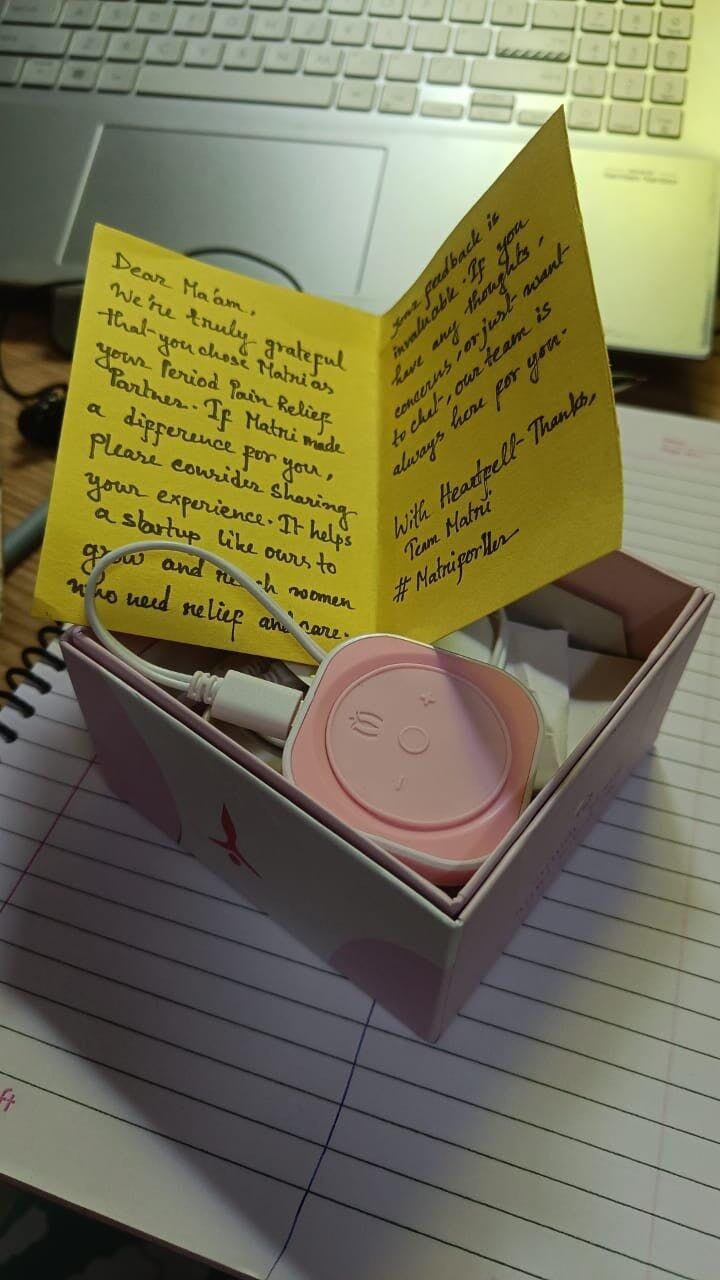 Dear Ma'am,
We're truly grateful
that you chose Matri as
your Period Pain Relief
Partner. If Matri made
a difference for you,
please consider sharing
your experience. It helps
a startup like ours to
grow and reach women
who need relief and care.
your feedback is
invaluable. If you
have any thoughts,
concerns, or just want
to chat, our team is
always here for you.
With Heartfelt Thanks,
Team Matri
# MatriforHer